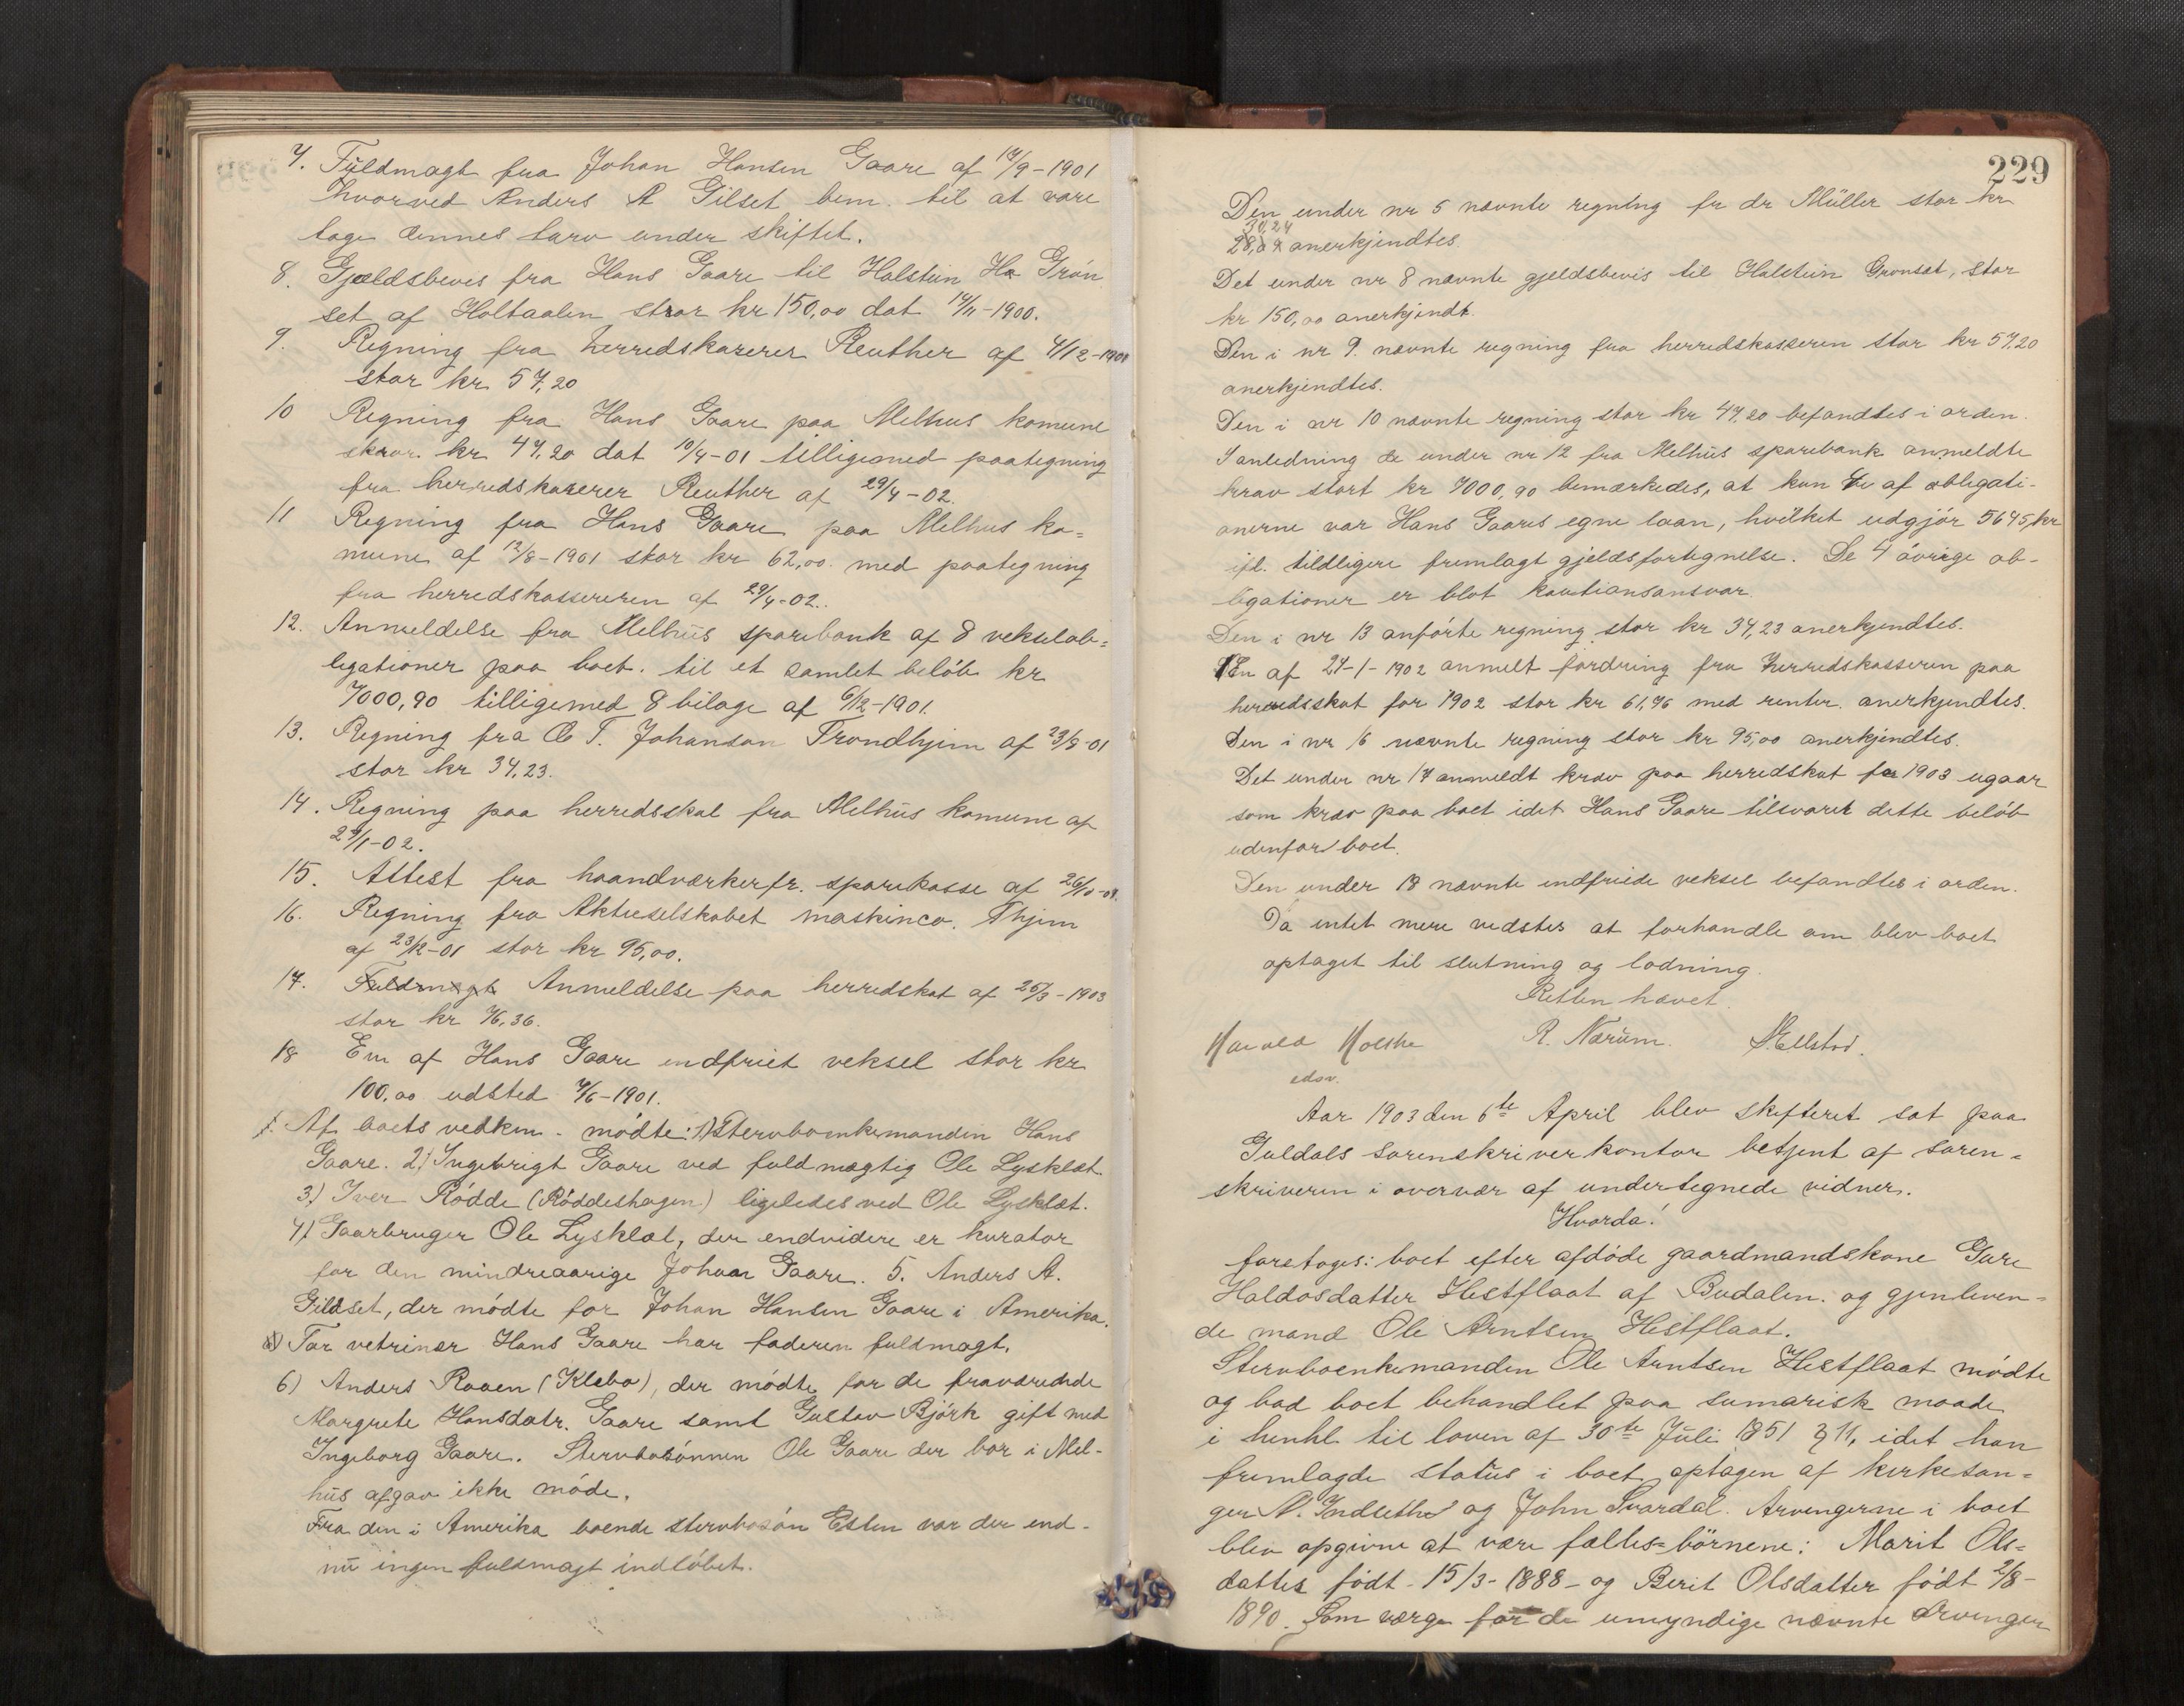 7. Fuldmagt fra Johan Hansen Gaare af 14/9-1901
hvorved Anders A Gilset bem. til at vare
tage dennes tarv under skiftet.
8. Gjældsbevis fra Hans Gaare til Halstein Ha Grön
set af Holtaalen stor kr 150,00 dat 14/11-1900.
9. Regning fra herredskaserer Reuther af 4/12-1901
stor kr 57,20
10 Regning fra Hans Gaare paa Melhus komune
stor kr 47,20 dat 10/4-01 tilligemed paategning
fra herredskaserer Reuther af 29/4-02.
11 Regning fra Hans Gaare paa Melhus ko=
mune af 12/8-1901 stor kr 62,00 med paategning
fra herredskassereren af 29/4-02.
12. Anmeldelse fra Melhus sparebank af 8 vekselob=
ligationer paa boet. til et samlet belöb kr
7000,90 tilligemed 8 bilage af 6/12-1901.
13. Regning fra O. T. Johanson Trondhjem af 23/9-01
stor kr 34,23.
14. Regning paa herredsskat fra Melhus komune af
24/1-02.
15. Attest fra haandværkerfr. sparekasse af 26/10-01.
16. Regning fra Aktieselskabet maskinco. Thjem
af 23/12-01 stor kr 95,00.
17. Fuldmagt Anmeldelse paa herredskat af 25/3-1903
stor kr 76,36.
18 En af Hans Gaare indfriet veksel stor kr
100,00 udsted 4/6-1901.
Af boets vedkm. mödte: 1) Stervboenkemanden Hans
Gaare. 2) Ingebrigt Gaare ved fuldmægtig Ole Lysklæt.
3.) Iver Rödde (Röddeshagen) ligeledes ved Ole Lysklæt.
4) Gaarbruger Ole Lysklæt, der endvidere er kurator
for den mindreaarige Johan Gaare. 5. Anders A.
Gildset, der mödte for Johan Hansen Gaare i Amerika.
For vetrinær Hans Gaare har faderen fuldmagt.
6) Anders Raaen (Klebo), der mödte for de fraværende
Margrete Hansdatr. Gaare samt Gustav Björk gift med
Ingeborg Gaare. Stervbosönnen Ole Gaare der bor i Mel-
hus afgav ikke möde.
Fra den i Amerika boende stervbosön Esten var der end-
nu ingen fuldmagt indlöbet.
229
Den under nr 5 nævnte regning fr dr Müller stor kr
30,24
anerkjendtes.
Det under nr 8 nævnte gjeldsbevis til Halstein Grönset, stor
kr 150,00 anerkjendt.
Den i nr 9. nævnte regning fra herredskasseren stor kr 57,20
anerkjendtes.
Den i nr 10 nævnte regning stor kr 47,20 befandtes i orden.
I anledning de under nr 12 fra Melhus sparebank anmeldte
krav stort kr 7000,90 bemærkedes, at kun 4 af obligati-
onerne var Hans Gaares egne laan, hvilket udgjör 5645, kr
ifl. tildligere fremlagt gjeldsfortegnelse. De 4 övrige ob-
ligationer er blot kautionsansvar.
Den i nr 13 anförte regning stor kr 34,23 anerkjendtes.
Den af 24-1-1902 anmelt fordring fra herredskasseren paa
herredsskat for 1902 stor kr 61,76 med renter anerkjendtes.
Den i nr 16 nævnte regning stor kr 95,00 anerkjendtes.
Det under nr 17 anmeldt krav paa herredskat for 1903 ugaar
som krav paa boet idet Hans Gaare tilsvaret dette belöb
udenfor boet.
Den under 18 nævnte indfriede veksel befandtes i orden.
Da intet mere vedstes at forhandle om blev boet
optaget til slutning og lodning.
Retten hævet.
R. Nærum. Ellstad.
edsv.
Aar 1903 den 6te April blev skifteret sat paa
Guldals sorenskriverkontor betjent af soren=
skriveren i overvær af undertegnede vidner.
Hvorda!
foretoges: boet efter afdöde gaardmandskone Gure
Haldosdatter Hestflaat af Budalen. og gjenleven=
de mand Ole Arntsen Hestflaat.
Stervboenkemanden Ole Arntsen Hestflaat mödte
og bad boet behandlet paa sumarisk maade
i henhl. til loven af 30te Juli 1851 § 11, idet han
fremlagde status i boet optagen af kirkesan=
ger N. Indsethe og John Svardal. Arvengerne i boet
blev opgivne at være fælles=börnene: Marit Ols=
datter födt 15/3-1888- og Berit Olsdatter födt 2/8-
1890. Som verge for de umyndige nævnte Arvenger